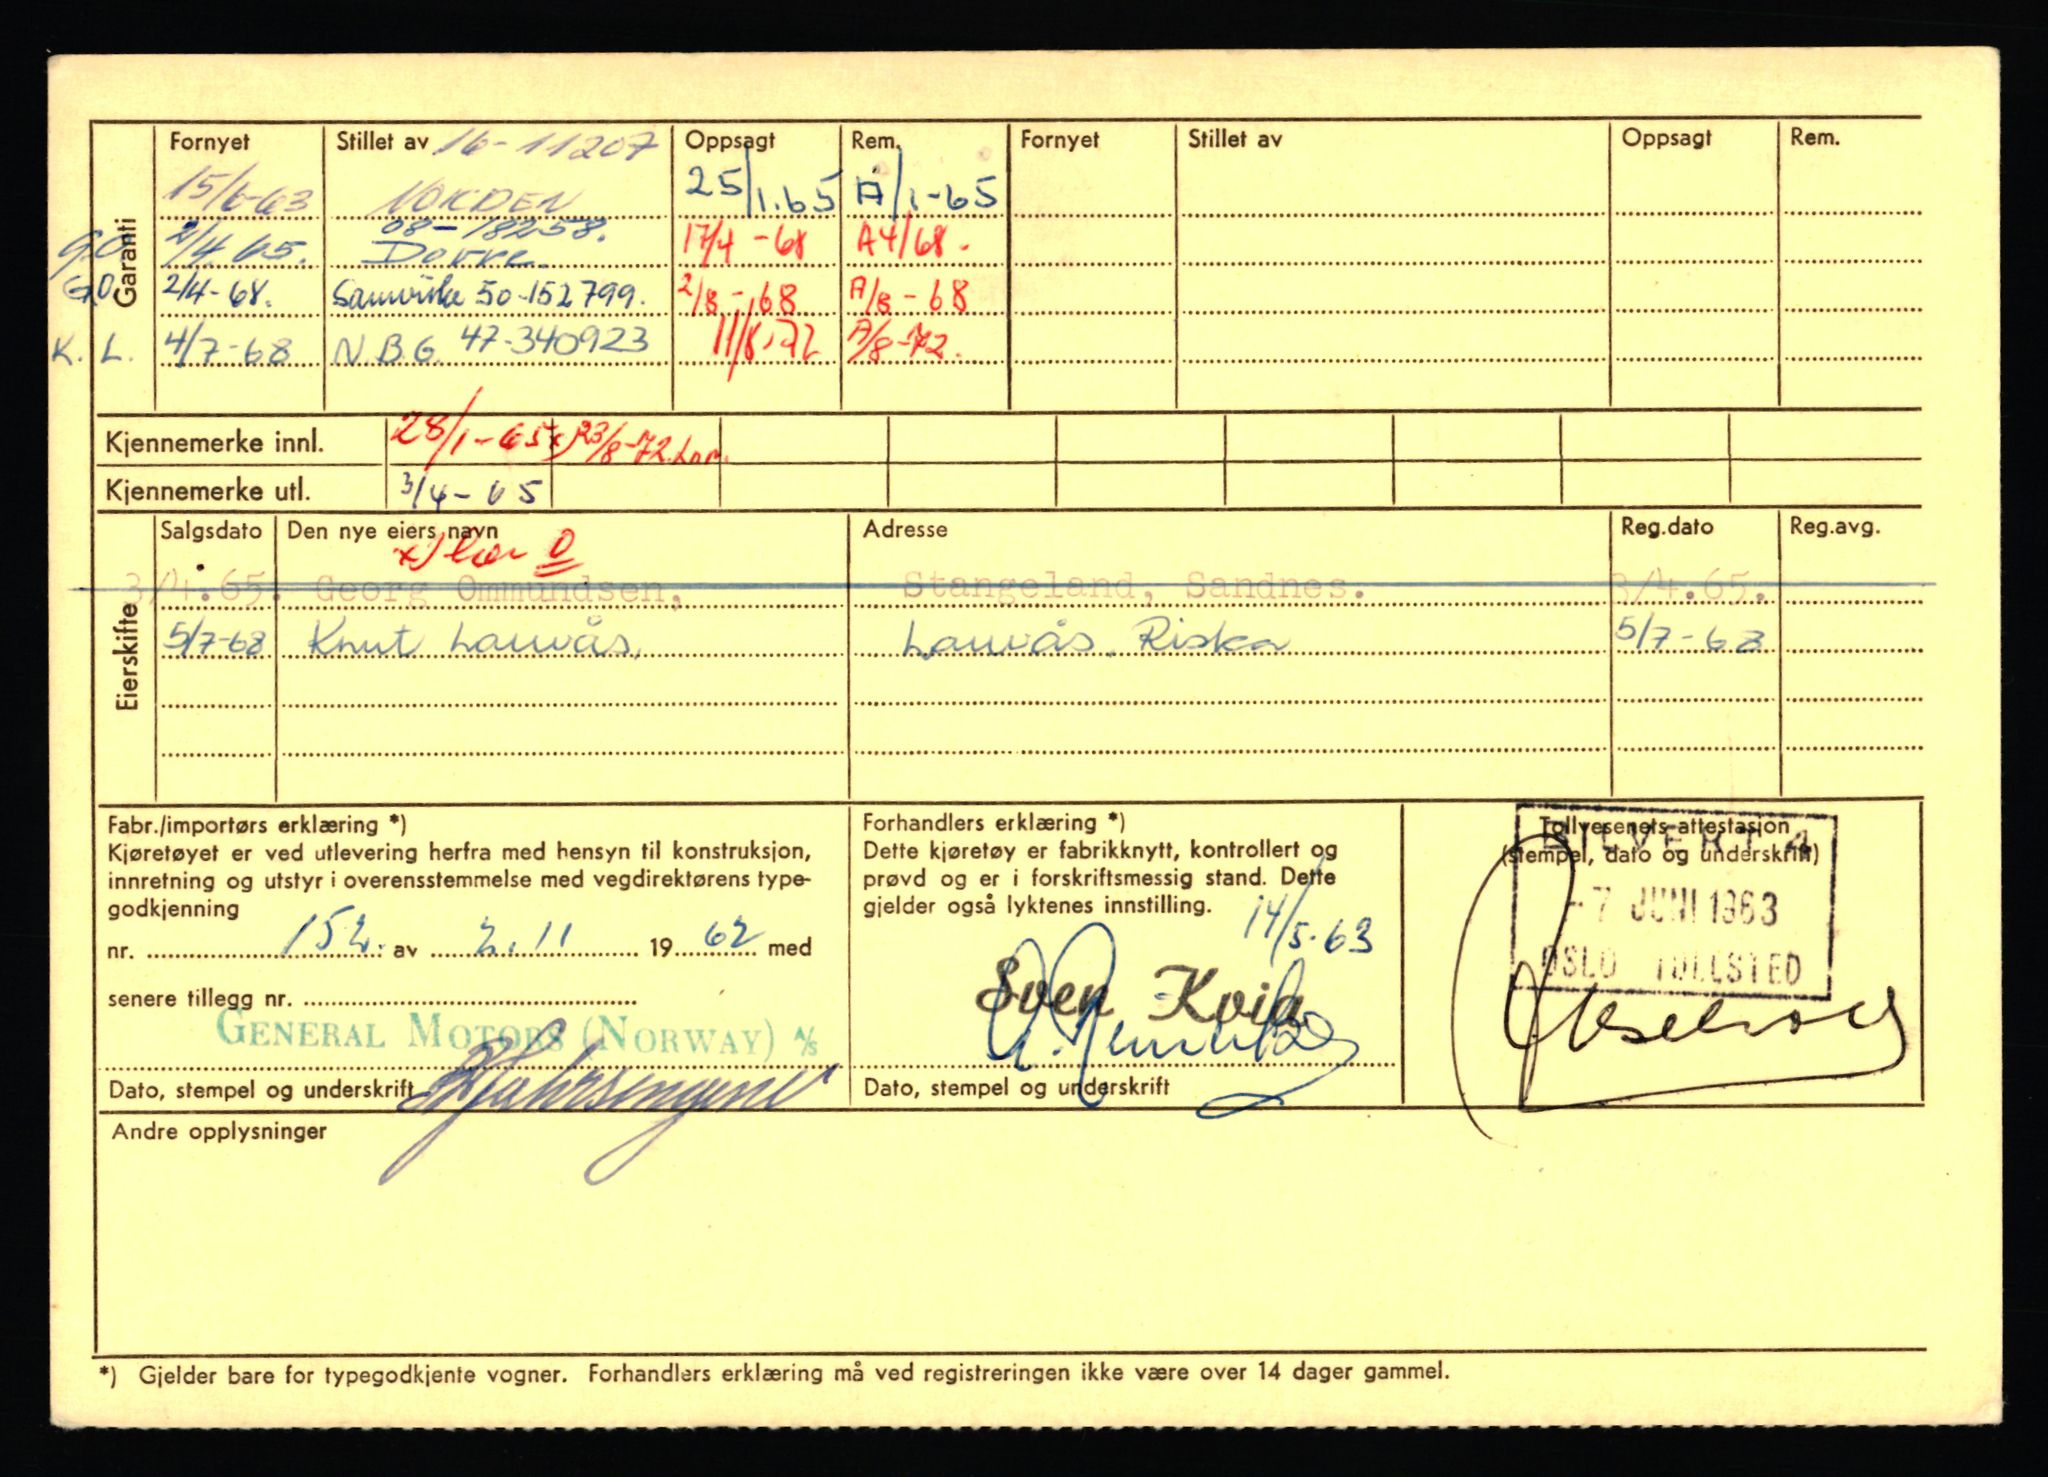 Garanti
Fornyet Stillet av 16-11207 Oppsagt Rem. Fornyet Stillet av Oppsagt Rem.
15/6-63 NORDEN 25/1.65 A/1-65
G.O. 2/4.65. 08-18258. Dovre 17/4-68 A4/68.
G.O. 2/4-68. Samvirke 50-152799. 2/8-68 A/8-68
K.L. 4/7-68 N.B.G. 47-340923 11/8-72 A/8-72.
Kjennemerke innl. 28/1-65 x) 23/8-72
Kjennemerke utl. 3/4-65
Eierskifte
Salgsdato Den nye eiers navn Adresse Reg.dato Reg.avg.
3/4.65. Georg Ommundsen, Stangeland, Sandnes. 3/4.65.
5/7-68 Knut Lauvås, Lauvås, Riska 5/7-68
Fabr./importørs erklæring *)
Kjøretøyet er ved utlevering herfra med hensyn til konstruksjon,
innretning og utstyr i overensstemmelse med vegdirektørens type-
godkjenning
nr. 152. av 2.11 1962 med
senere tillegg nr.
GENERAL MOTORS (NORWAY) A/S
Dato, stempel og underskrift
Forhandlers erklæring *)
Dette kjøretøy er fabrikknytt, kontrollert og
prøvd og er i forskriftsmessig stand. Dette
gjelder også lyktenes innstilling.
14/5-63
Sven Kvia
Dato, stempel og underskrift
Tollvesenets attestasjon
(stempel, dato og underskrift)
BILVERT 4
-7 JUNI 1963
OSLO TOLLSTED
Andre opplysninger
*) Gjelder bare for typegodkjente vogner. Forhandlers erklæring må ved registreringen ikke være over 14 dager gammel.